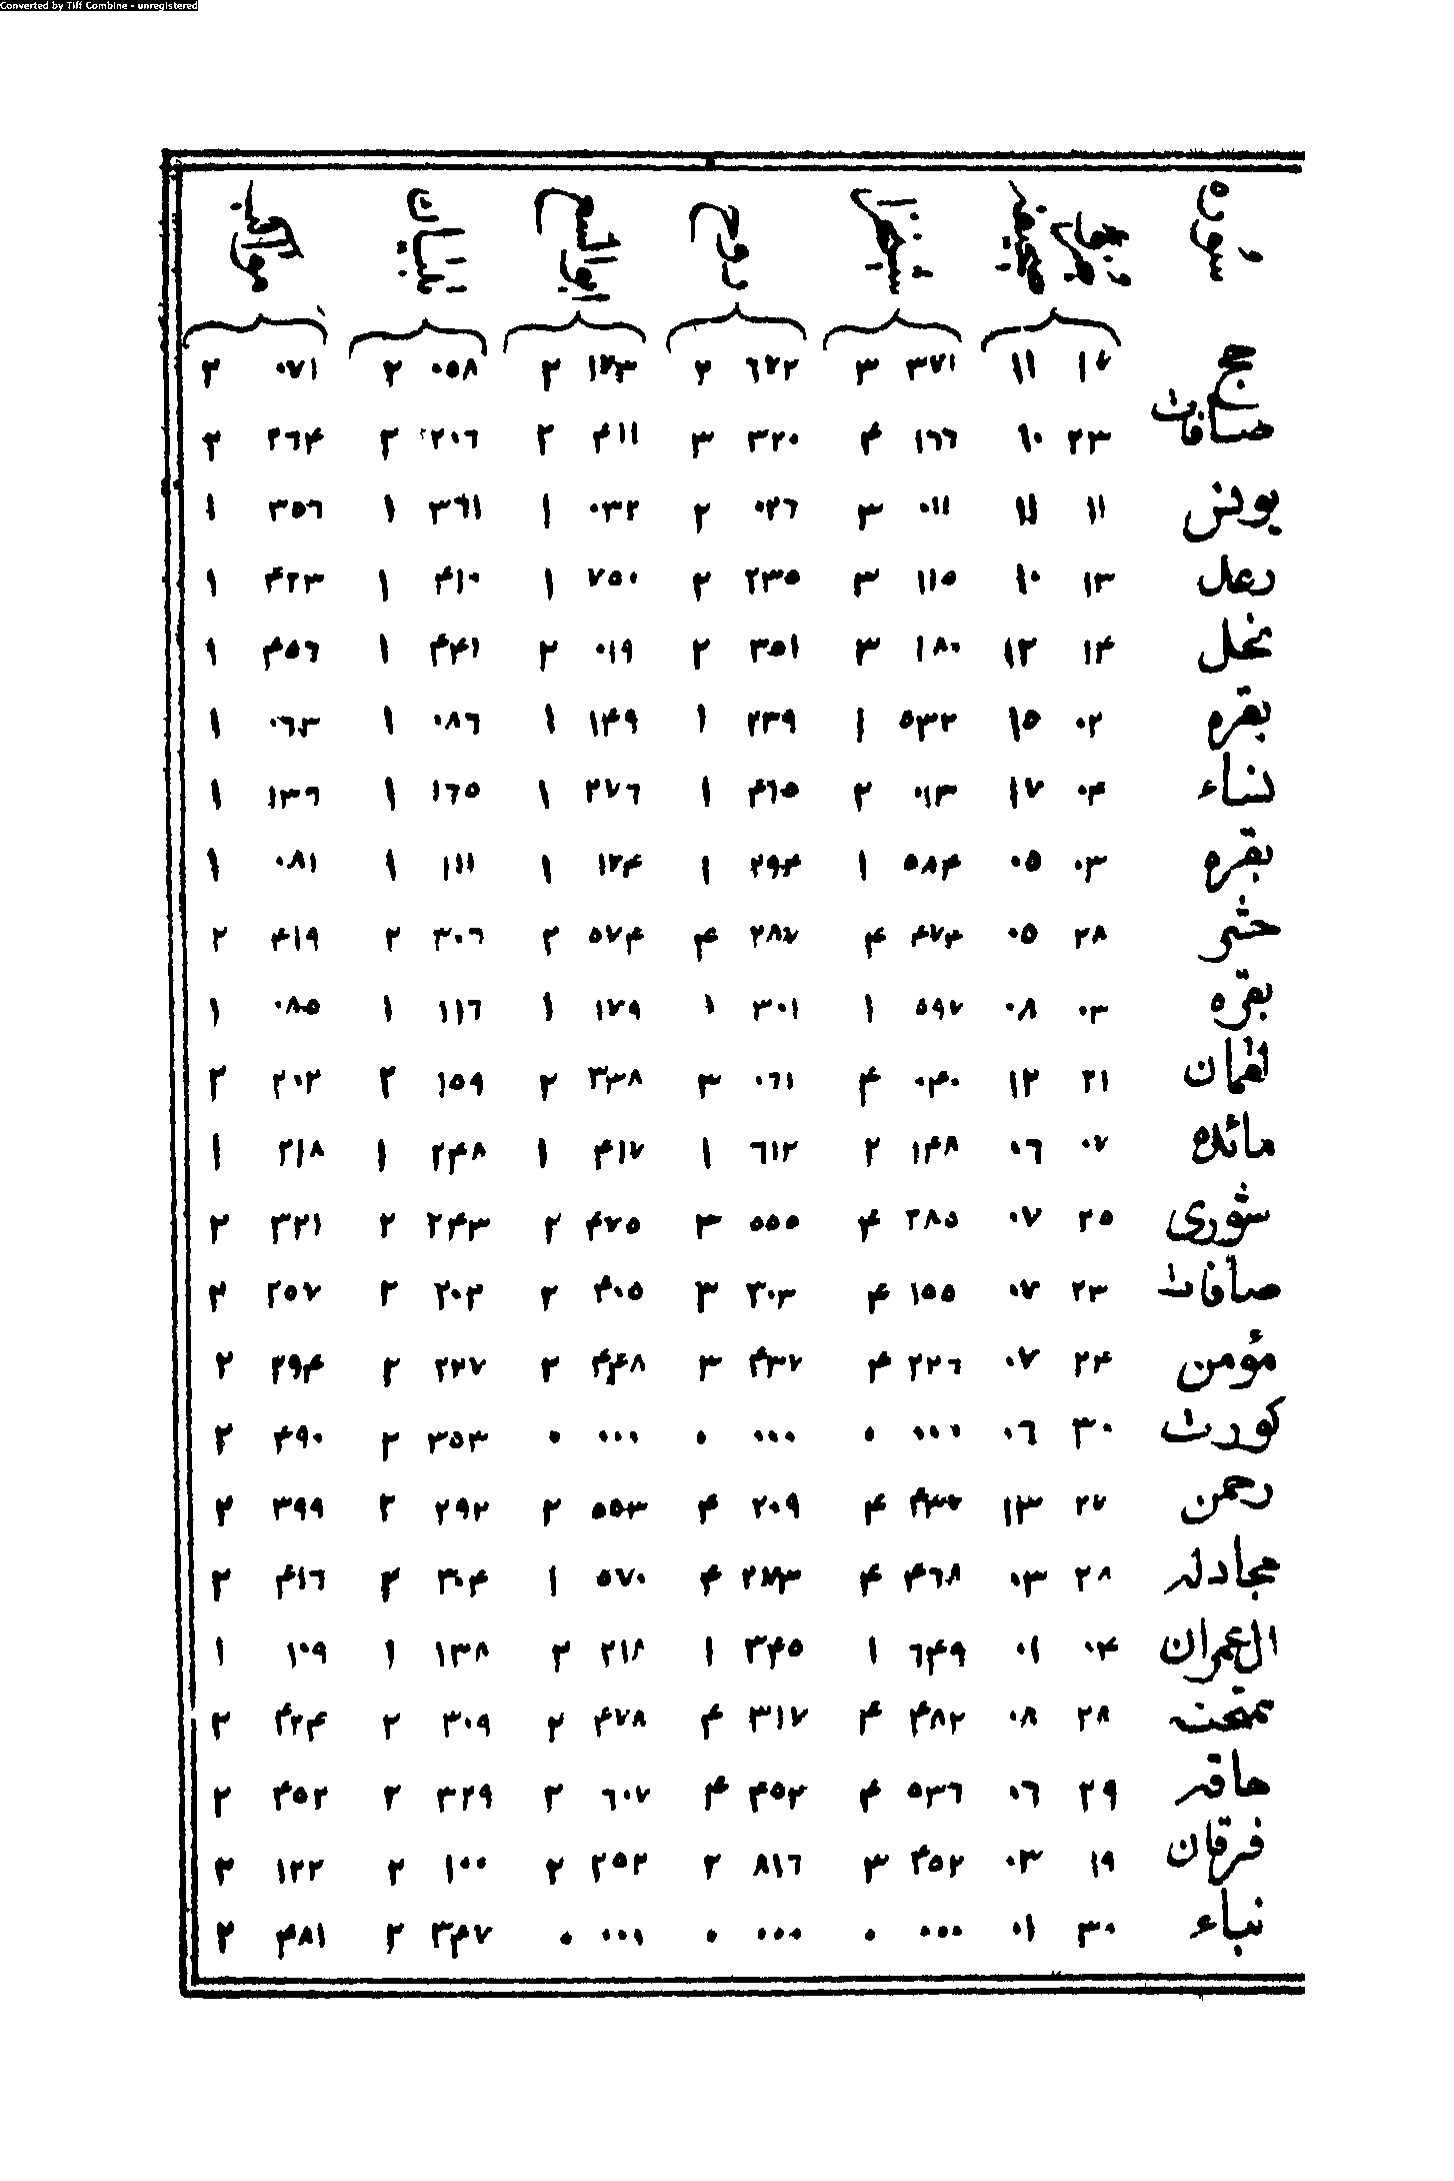 Converted by Tiff Combine - unregistered
سوره
حج ١٧ ١١ ٣٧١ ٣ ٦٧٢ ٢ ١٧٣ ٢ ٠٥٨ ٢ ٠٧١ ٢
صافات ٢٣ ١٠ ١٦٦ ۴ ٣٢٠ ٣ ۴١١ ٢ ٢٠٦ ٢ ٢٦۴ ٢
يونس ١١ ١١ ٠١١ ٣ ٠٢٦ ٢ ٠٣٢ ١ ٣٦١ ١ ٣٥٦ ١
رعد ١٣ ١٠ ١١٥ ٣ ٢٣٥ ٢ ٧٥٠ ١ ۴١٠ ١ ۴٢٣ ١
نحل ١۴ ١٢ ١٨٠ ٣ ٣٥١ ٢ ٠١٩ ٢ ۴۴١ ١ ۴٥٦ ١
بقره ٠٢ ١٥ ٥٣٢ ١ ٢٣٩ ١ ١۴٩ ١ ٠٨٦ ١ ٠٦٣ ١
نساء ٠۴ ١٧ ٠١٣ ٢ ۴٦٥ ١ ٢٧٦ ١ ١٦٥ ١ ١٣٦ ١
بقره ٠٣ ٠٥ ٥٨۴ ١ ٢٩۴ ١ ١٧۴ ١ ١١١ ١ ٠٨١ ١
حشر ٢٨ ٠٥ ۴٧۴ ۴ ٢٨٧ ۴ ٥٧۴ ٢ ٣٠٦ ٢ ۴١٩ ٢
بقره ٠٣ ٠٨ ٥٩٧ ١ ٣٠١ ١ ١٧٩ ١ ١١٦ ١ ٠٨٥ ١
لقمان ٢١ ١٢ ٠۴٠ ۴ ٠٦١ ٣ ٣٣٨ ٢ ١٥٩ ٢ ٢٠٢ ٢
مائده ٠٧ ٠٦ ١۴٨ ٢ ٦١٢ ١ ۴١٧ ١ ٢۴٨ ١ ٢١٨ ١
شورى ٢٥ ٠٧ ٢٨٥ ۴ ٥٥٥ ٣ ۴٧٥ ٢ ٢۴٣ ٢ ٣٢١ ٢
صافات ٢٣ ٠٧ ١٥٥ ۴ ٣٠٣ ٣ ۴٠٥ ٢ ٢٠٢ ٢ ٢٥٧ ٢
مؤمن ٢۴ ٠٧ ٢٢٦ ۴ ۴٣٧ ٣ ۴۴٨ ٢ ٢٢٧ ٢ ٢٩۴ ٢
كورت ٣٠ ٠٦ ٠٠٠ ٠ ٠٠٠ ٠ ٠٠٠ ٠ ٣٥٣ ٢ ۴٩٠ ٢
رحمن ٢٧ ١٣ ۴٣٧ ۴ ٢٠٩ ۴ ٥٥٣ ٢ ٢٩٢ ٢ ٣٩٩ ٢
مجادله ٢٨ ٠٣ ۴٦٨ ۴ ٢٧٣ ۴ ٥٧٠ ١ ٣٠۴ ٢ ۴١٦ ٢
ال عمران ٠۴ ٠١ ٦۴٩ ١ ٣۴٥ ١ ٢١٨ ٢ ١٣٨ ١ ١٠٩ ١
ممتحنه ٢٨ ٠٨ ۴٨٢ ۴ ٣١٧ ۴ ۴٧٨ ٢ ٣٠٩ ٢ ۴٢۴ ٢
حاقه ٢٩ ٠٦ ٥٣٦ ۴ ۴٥٢ ۴ ٦٠٧ ٢ ٣٢٩ ٢ ۴٥٢ ٢
فرقان ١٩ ٠٣ ۴٥٢ ٣ ٨١٦ ٢ ٢٥٢ ٢ ١٠٠ ٢ ١٢٢ ٢
نباء ٣٠ ٠١ ٠٠٠ ٠ ٠٠٠ ٠ ٠٠١ ٠ ٣۴٧ ٢ ۴٨١ ٢